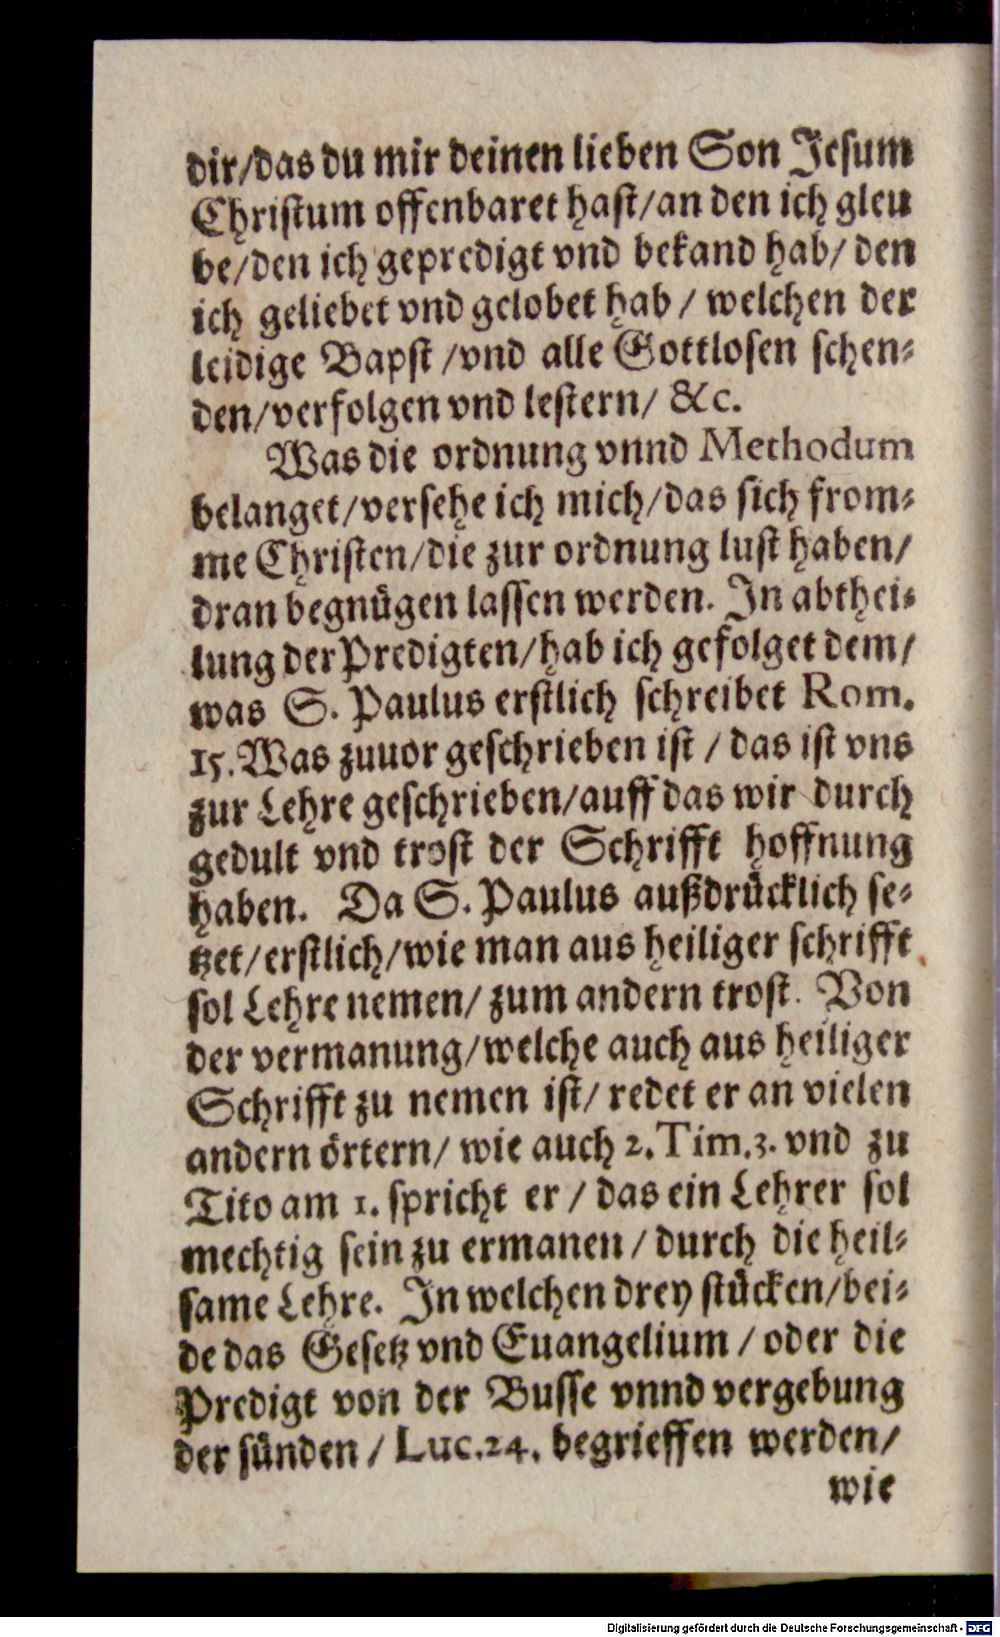 dir/das du mir deinen lieben Son Jesum
Christum offenbaret hast/an den ich gleu
be/den ich gepredigt vnd bekand hab/ den
ich geliebet vnd gelobet hab / welchen der
leidige Bapst /vnd alle Gottlosen schen-
den/verfolgen vnd lestern/ &c.
Was die ordnung vnnd Methodum
belanget/versehe ich mich/das sich from-
me Christen/die zur ordnung lust haben/
dran begnügen lassen werden. In abthei-
lung der Predigten/hab ich gefolget dem/
was S. Paulus erstlich schreibet Rom.
15. Was zuuor geschrieben ist / das ist vns
zur Lehre geschrieben/auff das wir durch
gedult vnd trost der Schrifft hoffnung
haben. Da S. Paulus außdrücklich se-
tzet/erstlich/wie man aus heiliger schrifft
sol Lehre nemen/ zum andern trost. Von
der vermanung/welche auch aus heiliger
Schrifft zu nemen ist/ redet er an vielen
andern örtern/ wie auch 2. Tim.3. vnd zu
Tito am 1. spricht er / das ein Lehrer sol
mechtig sein zu ermanen / durch die heil-
same Lehre. In welchen drey stücken/bei-
de das Gesetz vnd Euangelium / oder die
Predigt von der Busse vnnd vergebung
der sünden / Luc.24. begrieffen werden/
wie
Digitalisierung gefördert durch die Deutsche Forschungsgemeinschaft - DFG